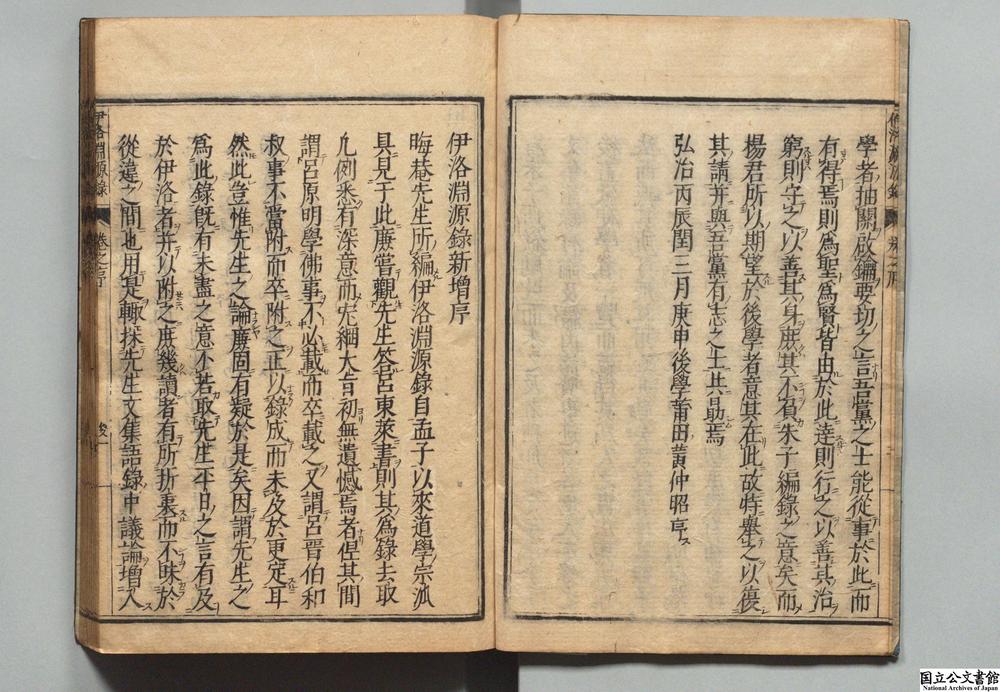 學者抽關啟鑰要切之言吾黨之士能從事於此而
有得焉則為聖為賢皆由於此達則行之以善其治
窮則守之以善其身庶其不負朱子編錄之意矣而
楊君所以期望於後學者意其在此故特舉之以復
其請并與吾黨有志之士共勗焉
弘治丙辰閏三月庚申後學莆田黃仲昭序
伊洛淵源錄新增序
晦菴先生所編伊洛淵源錄自孟子以來道學宗派
具見于此廉嘗觀先生答呂東萊書則其為錄去取
凡例悉有深意而宏綱大旨初無遺憾焉者但其間
謂呂原明學佛事不必載而卒載之又謂呂晉伯和
叔事不當附而卒附之正以錄成而未及於更定耳
然此豈惟先生之論廉固有疑於是矣因謂先生之
為此錄旣有未盡之意不若取先生平日之言有及
於伊洛者并以附之庶幾讀者有所折衷而不昧於
從違之間也用是輙採先生文集語錄中議論增入
伊洛淵源錄
卷之序
後一
国立公文書館
National Archives of Japan